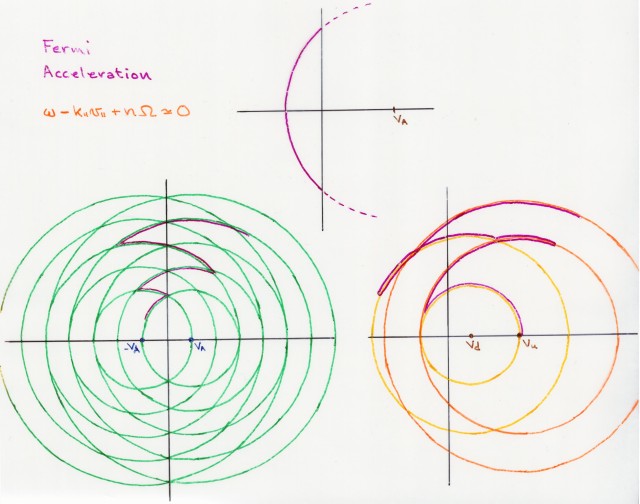 Fermi
Acceleration
ω - k₁₁v₁₁ + nΩ ≈ 0
V_A
-V_A
V_A
V_d
V_u